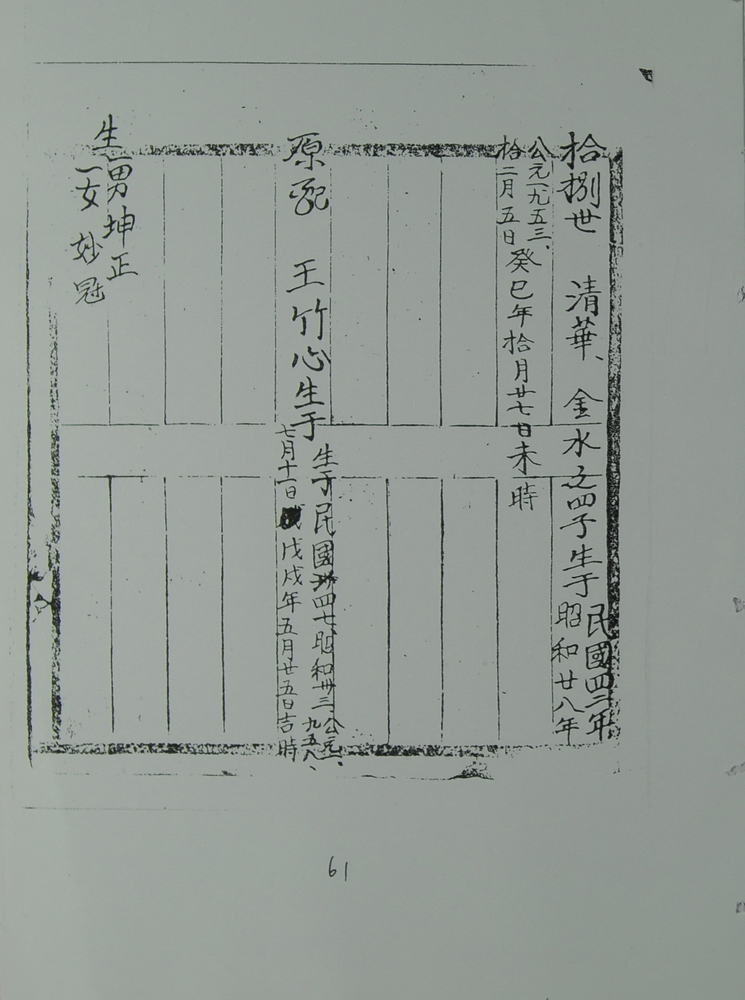 拾捌世 清華、金水之四子生于民國四二年
昭和廿八年
公元一九五三、
拾二月五日
癸巳年拾月廿七日未時
原配 王竹心生于
生于民國四七、昭和卅三、公元一九五八、
七月十一日 戊戌年五月廿五日吉時
生一男坤正
一女 妙冠
61